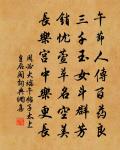 午節人傳百藥良
三千玉女斗群芳
銷忧萱草名空美
長樂宮中樂更長
周必大端午帖子太上
皇后閣詞典網書